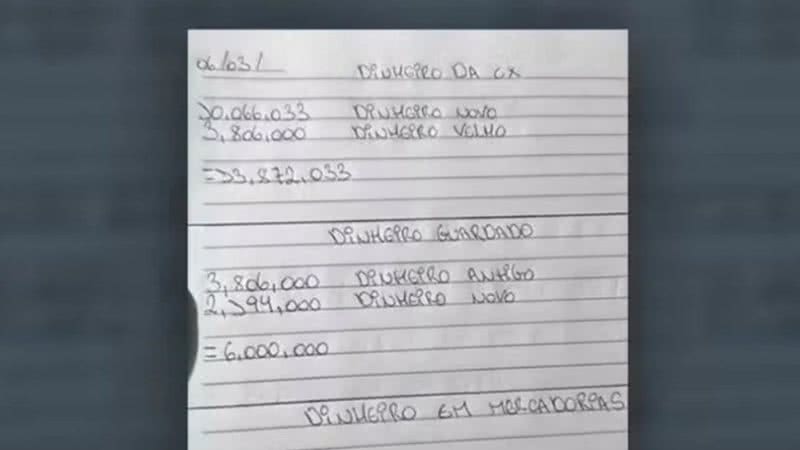 06/03/
DINHEIRO DA CX
10,066,033 DINHEIRO NOVO
3,806,000 DINHEIRO VELHO
=13,872,033
DINHEIRO GUARDADO
3,806,000 DINHEIRO ANTIGO
2,194,000 DINHEIRO NOVO
=6,000,000
DINHEIRO EM MERCADORIAS